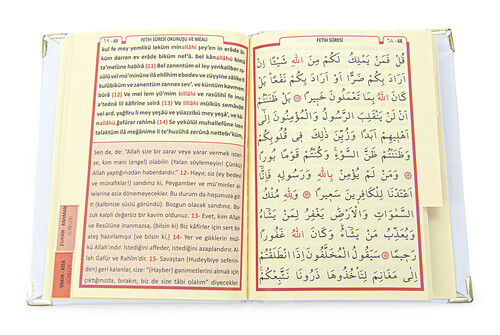 ٦٩ - 69
FETİH SÛRESİ OKUNUŞU ve MEALİ
kul fe mey yemlikü leküm minallâhi şey'en in erâde bi-
küm darran ev erâde biküm nef'â, bel kânallâhü bimâ
ta'melûne habîrâ (11) Bel zanentüm el ley yenkaliber ra-
sûlü vel mü'minûne ilâ ehlîhim ebedev ve züyyine zâlike fî
kulûbiküm ve zanentüm zannes sev'. ve küntüm kavmem
bûrâ (12) Ve mel lem yü'mim billâhi ve rasûlihî fe innâ
a'tednâ lil kâfirîne seîrâ (13) Ve lillâhi mülküs semâvâti
vel ard. yağfiru li mey yeşâü ve yüazzibü mey yeşâ'. ve kâ-
nallâhü ğafûrar rahîmâ (14) Se yekûlül muhallefûne izen
talaktüm ilâ meğânime li te'huzûhâ zerûnâ nettebi'küm,
Sen de, de: "Allah size bir zarar veya yarar vermek ister-
se, kim mani (engel) olabilir. (Yalan söylemeyin! Çünkü)
Allah yaptığınızdan haberdardır." 12- Hayır, siz (ey bedevi
ve münafıklar!) sandınız ki, Peygamber ve mü'minler ai-
lelerine asla dönemeyecekler. Bu durum da hoşunuza gitti
(kalbinize süslü göründü). Bozgun olacak sandınız. Bo-
zuk kalpli değersiz bir kavim oldunuz. 13- Evet, kim Allah
ve Resûlüne inanmazsa, (bilsin ki) Biz kâfirler için sert bir
ateş hazırlamışız (ve bilsin ki,) 14- Yer ve göklerin mül-
kü Allah'ındır. İstediğini affeder, istediğini azaplandırır. Al-
lah Gafûr ve Rahîm'dir. 15- Savaştan (Hudeybiye seferin-
den) geri kalanlar, size: "(Hayber) ganimetlerini almak için
çıktığınızda, bırakın, biz de size tâbi olalım" diyecekler.
DUHAN - RAHMAN
VAKIA - KISA
SURELER
FETİH SÛRESİ
٦٨ - 68
قُلْ فَمَنْ يَمْلِكُ لَكُمْ مِنَ اللّٰهِ شَيْـًٔا اِنْ
اَرَادَ بِكُمْ ضَرًّا اَوْ اَرَادَ بِكُمْ نَفْعًاۜ بَلْ
كَانَ اللّٰهُ بِمَا تَعْمَلُونَ خَبِيرًا ۝ بَلْ ظَنَنْتُمْ
اَنْ لَنْ يَنْقَلِبَ الرَّسُولُ وَالْمُؤْمِنُونَ اِلٰٓى
اَهْلِيهِمْ اَبَدًا وَزُيِّنَ ذٰلِكَ فِي قُلُوبِكُمْ
وَظَنَنْتُمْ ظَنَّ السَّوْءِۚ وَكُنْتُمْ قَوْمًا بُورًا
۝ وَمَنْ لَمْ يُؤْمِنْ بِاللّٰهِ وَرَسُولِهٖ فَاِنَّٓا
اَعْتَدْنَا لِلْكَافِرِينَ سَعِيرًا ۝ وَلِلّٰهِ مُلْكُ
السَّمٰوَاتِ وَالْاَرْضِۜ يَغْفِرُ لِمَنْ يَشَٓاءُ
وَيُعَذِّبُ مَنْ يَشَٓاءُۜ وَكَانَ اللّٰهُ غَفُورًا
رَحِيمًا ۝ سَيَقُولُ الْمُخَلَّفُونَ اِذَا انْطَلَقْتُمْ
اِلٰى مَغَانِمَ لِتَأْخُذُوهَا ذَرُونَا نَتَّبِعْكُمْۚ